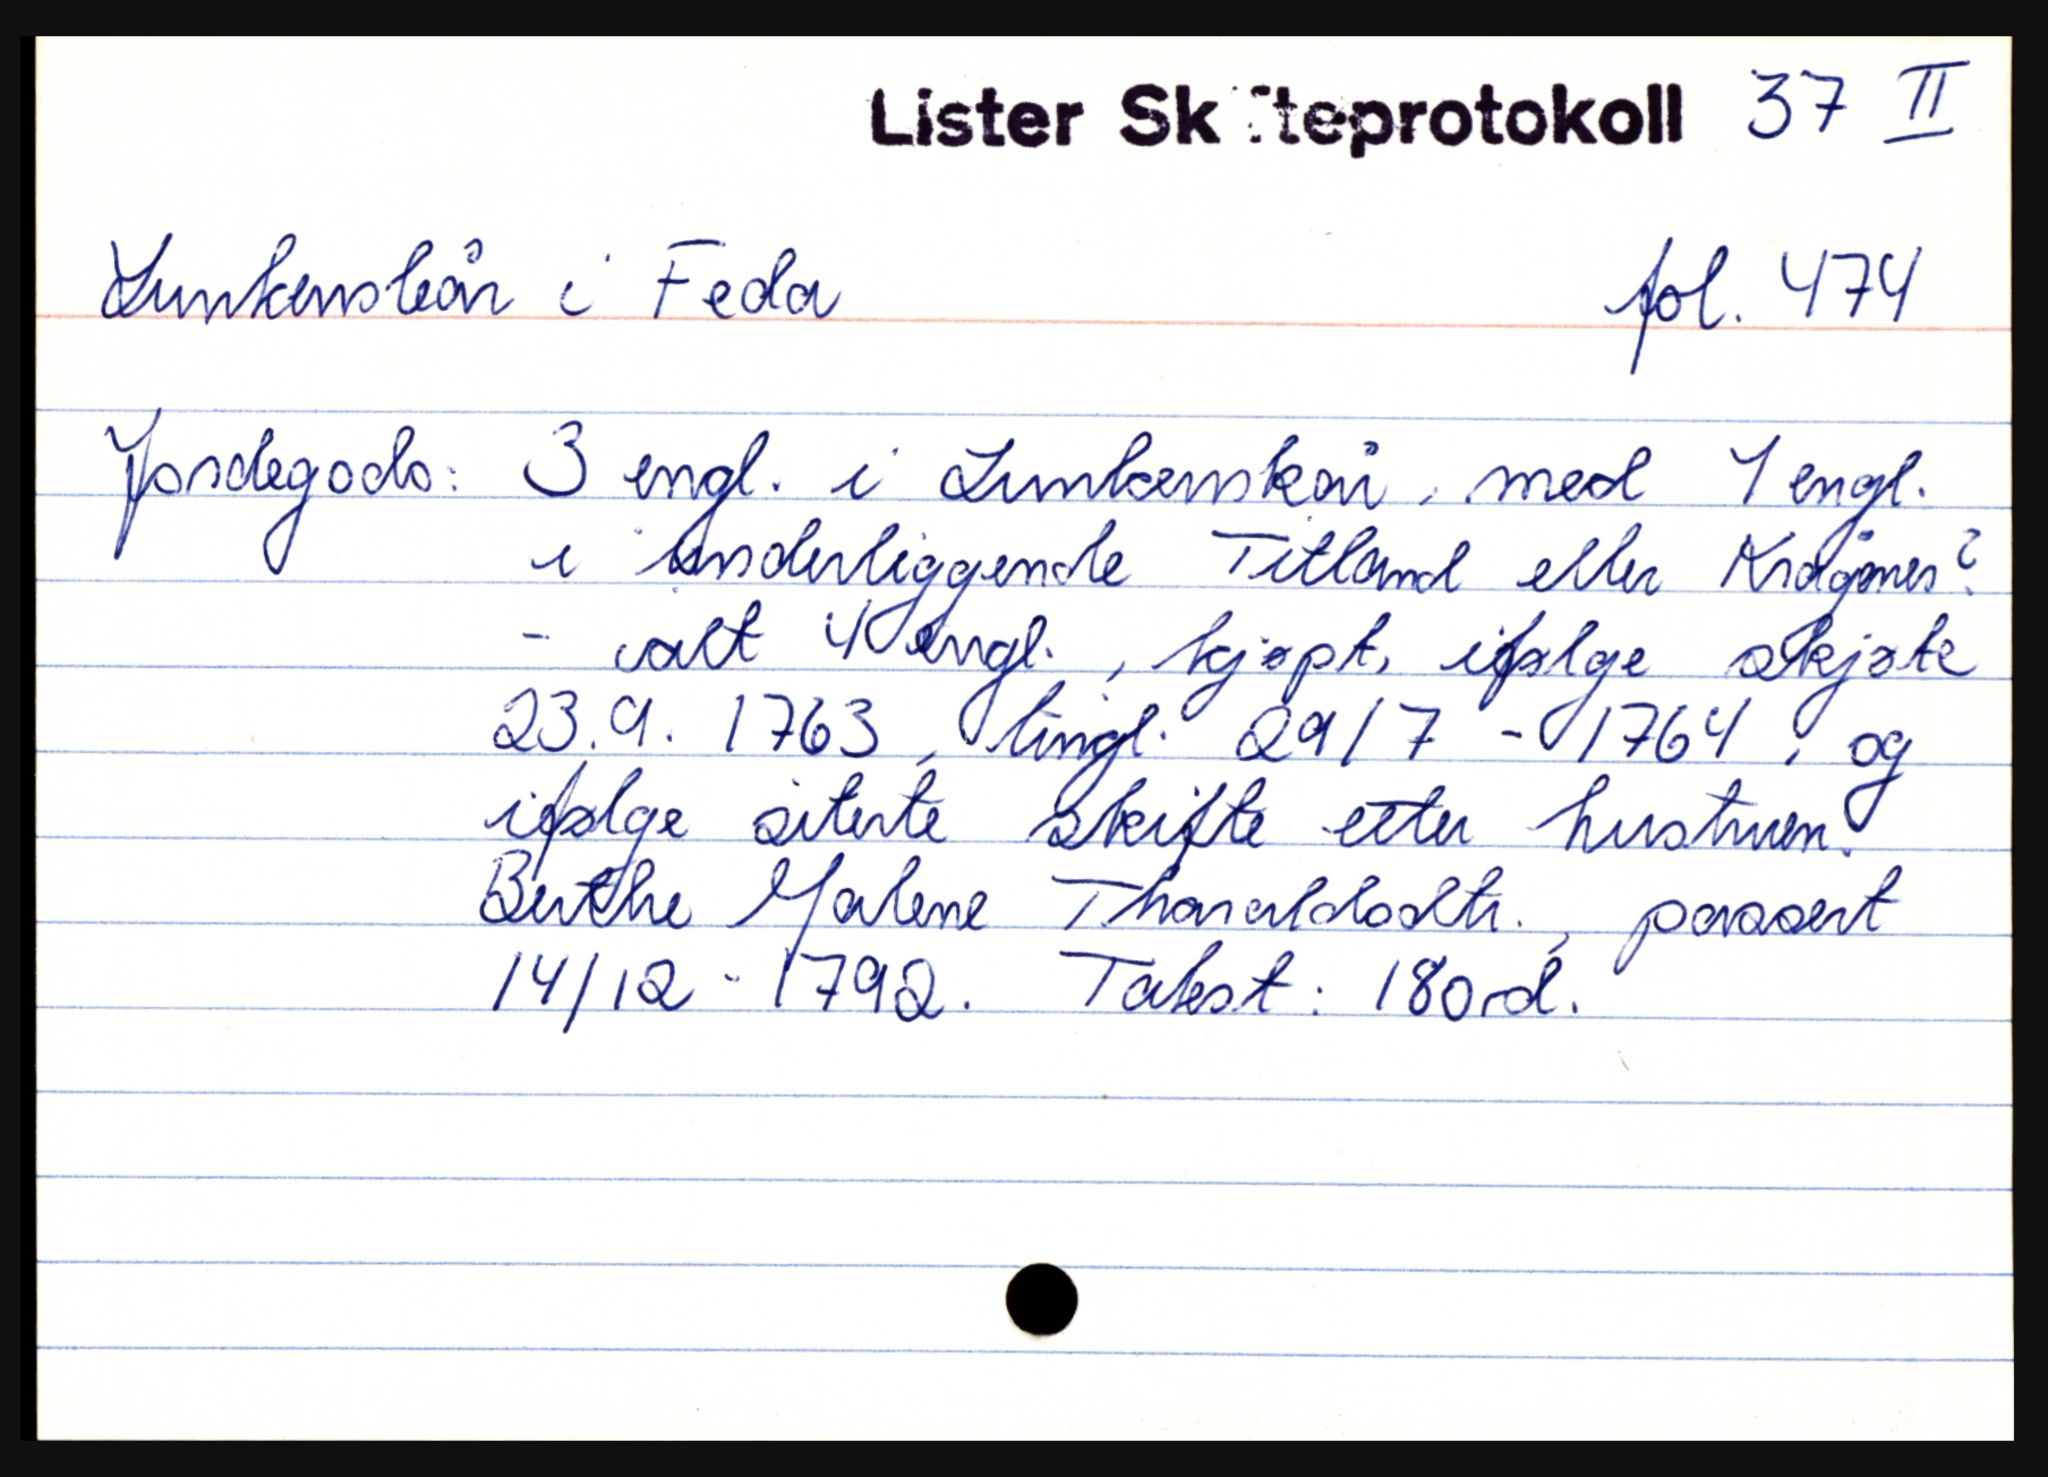 Lister Skifteprotokoll 37 II
Lunkenskår i Feda fol. 474
Jordegods: 3 engl. i Lunkenskår, med 1 engl.
i underliggende Titland eller
- ialt 4 engl., kjøpt, ifølge skjøte
23.9. 1763, tingl. 29/7 - 1764, og
ifølge siterte skifte etter hustruen.
Berthe Malene Tharaldsdtr., passert
14/12 - 1792. Takst: 180 rd.